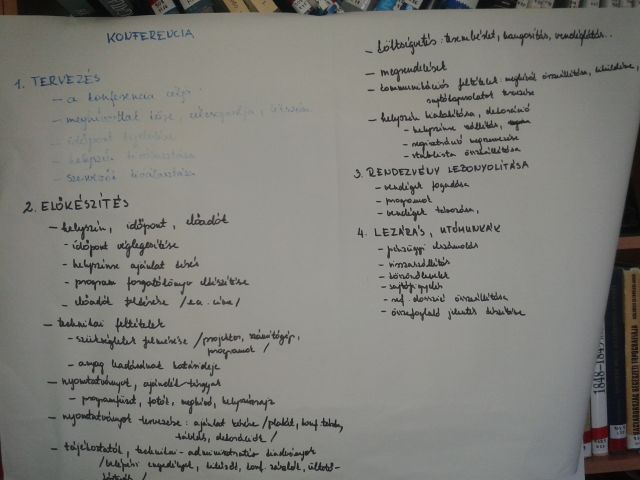 KONFERENCIA
1. TERVEZÉS
- a konferencia célja
- meghívottak köre, célcsoportja, létszám
- időpont kijelölése
- helyszín kiválasztása
- szekciók kiválasztása
2. ELŐKÉSZÍTÉS
- helyszín, időpont, előadók
- időpont véglegesítése
- helyszínre ajánlat kérés
- program forgatókönyv elkészítése
- előadók felkérése /ea. címe/
- technikai feltételek
- szükségletek felmérése /projektor, számítógép,
programok/
- anyag leadásának határideje
- nyomtatványok, ajándék-tárgyak
- programfüzet, fotók, meghívó, helyszínrajz
- nyomtatványok tervezése: ajánlat kérése /plakát, konf. táska,
táblák, dekorációk/
- tájékoztatók, technikai-adminisztratív kiadványok
/belépési engedélyek, kitűzők, konf. zászlók, ültető-
kártyák/
- költségvetés: terembérlet, hangosítás, vendéglátás..
- megrendelések
- kommunikációs feltételek: meghívók összeállítása, kiküldése,
sajtókapcsolatok tervezése
- helyszín kialakítása, dekoráció
- helyszínre szállítás,
- regisztráció megszervezése
- stáblista összeállítása
3. RENDEZVÉNY LEBONYOLÍTÁSA
- vendégek fogadása
- programok
- vendégek távozása,
4. LEZÁRÁS, UTÓMUNKÁK
- pénzügyi elszámolás
- visszaszállítás
- köszönőlevelek
- sajtófigyelés
- ref. dosszié összeállítása
- összefoglaló jelentés készítése
1848-1849